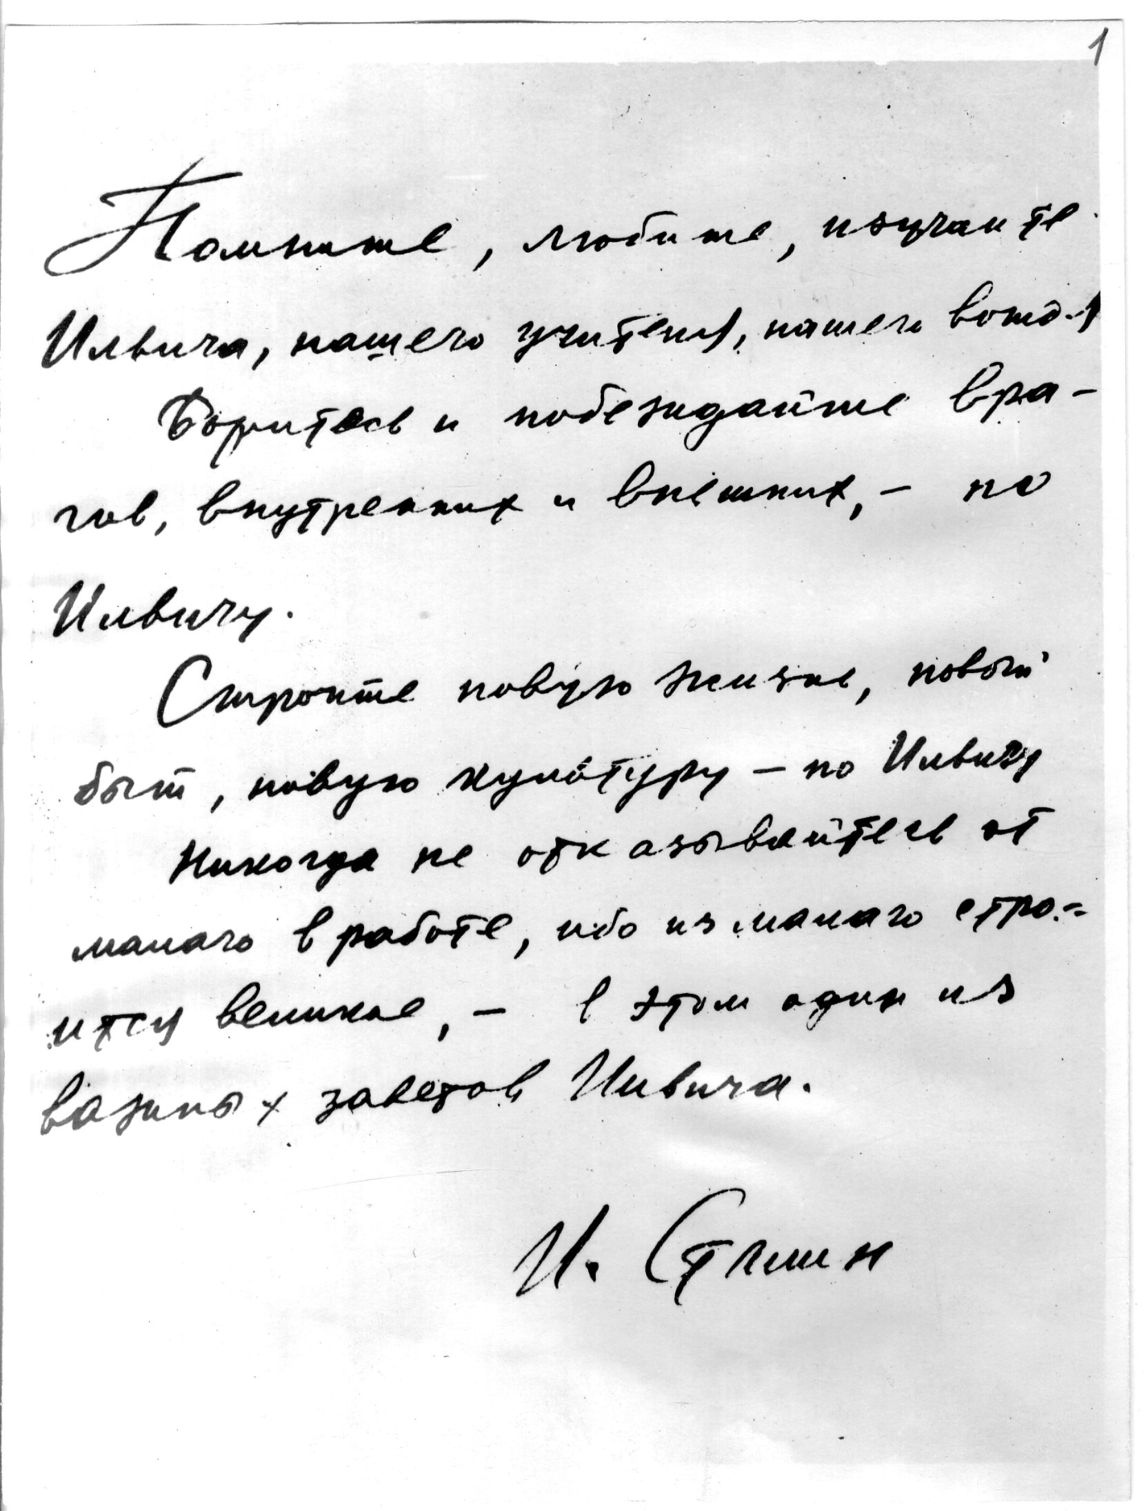 1
Помните, любите, изучайте
Ильича, нашего учителя, нашего вождя
Боритесь и побеждайте вра-
гов, внутренних и внешних, – по
Ильичу.
Стройте новую жизнь, новый
быт, новую культуру – по Ильичу
Никогда не отказывайтесь от
малаго в работе, ибо из малаго стро-
ится великое, – в этом один из
важных заветов Ильича.
И. Сталин